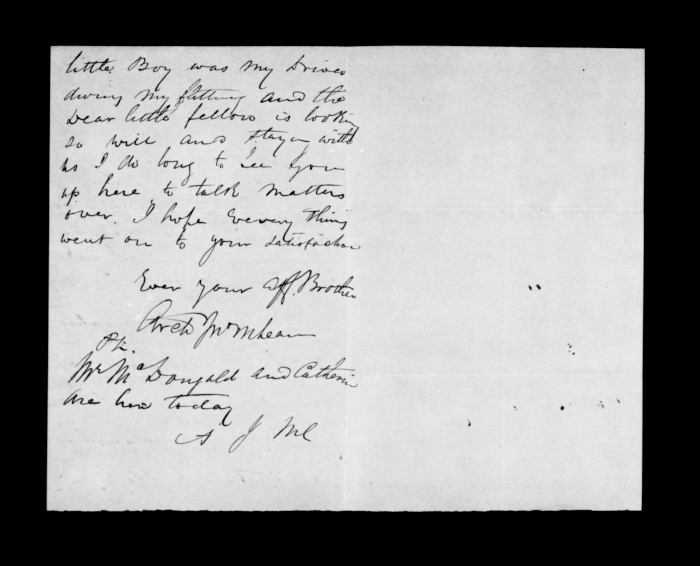 little Boy was my Driver
during my flitting and the
Dear little fellow is looking
so well and staying with
us I do long to see you
up here to talk matters
over. I hope Everry thing
went on to your satisfaction
Ever your aff. Brother
Arch
Mr. McDougald and Catherin
are here today
A J McL